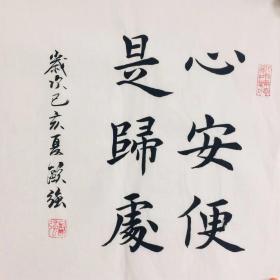 心安便
是歸處
歲次己亥夏歐強